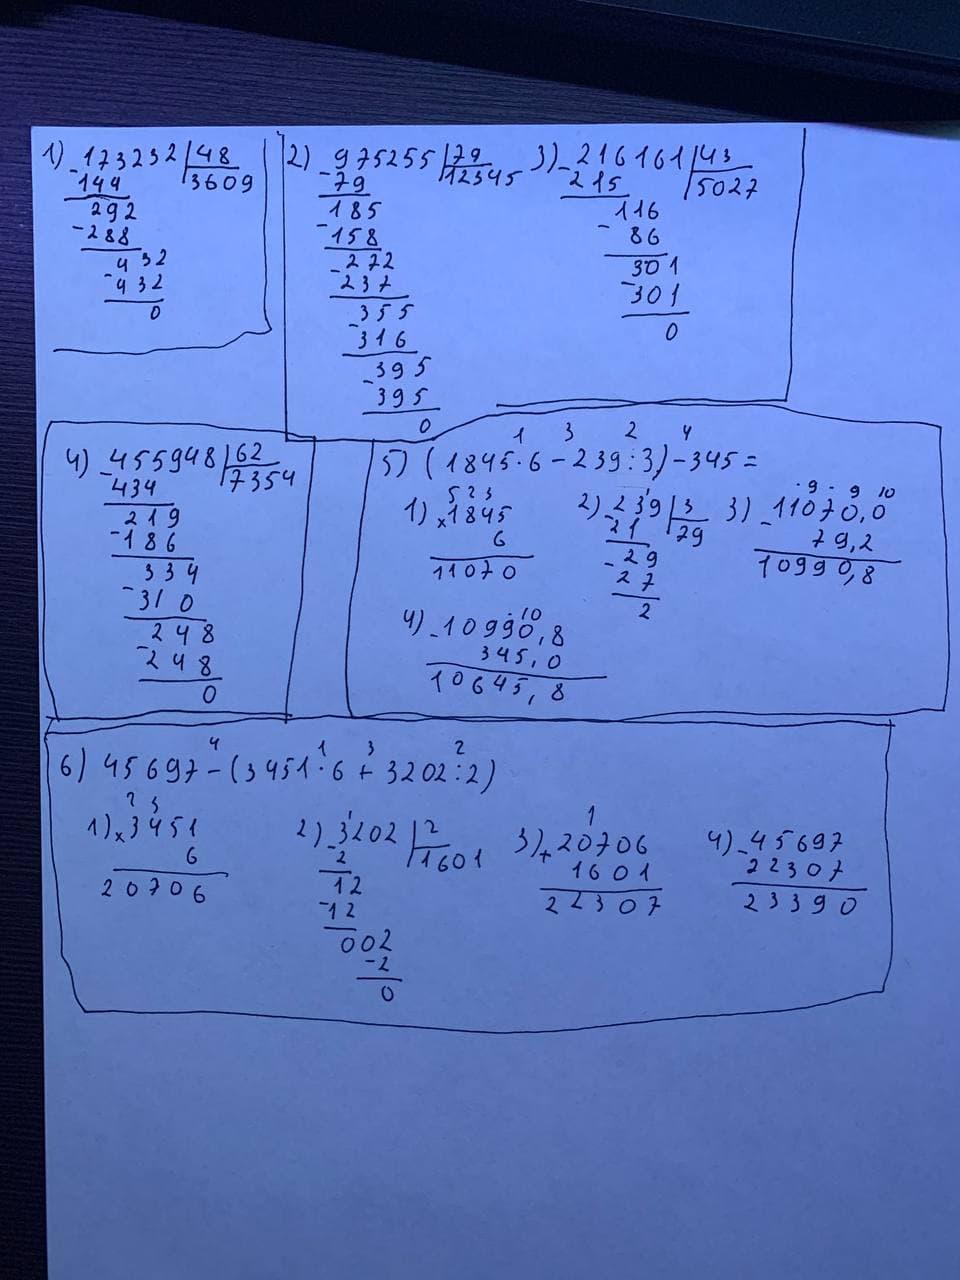 1) -173232 | 48
144 | 3609
292
-288
432
-432
0
2) 975255 | 79
-79 | 12345
185
-158
272
-237
355
-316
395
-395
0
3) -216161 | 43
215 | 5027
116
- 86
301
-301
0
4) -455948 | 62
434 | 7354
219
-186
334
-310
248
-248
0
1 3 2 4
5) (1845·6-239:3)-345=
5 2 3
1) x1845
6
11070
2) -239 | 3
21 | 79
-29
27
2
· 9 · 9 10
3) -11070,0
79,2
10990,8
· 10
4) -10990,8
345,0
10645,8
4 1 3 2
6) 45697-(3451·6+3202:2)
2 3
1) x3451
6
20706
2) -3202 | 2
2 | 1601
12
-12
002
-2
0
1
3) +20706
1601
22307
4) -45697
22307
23390